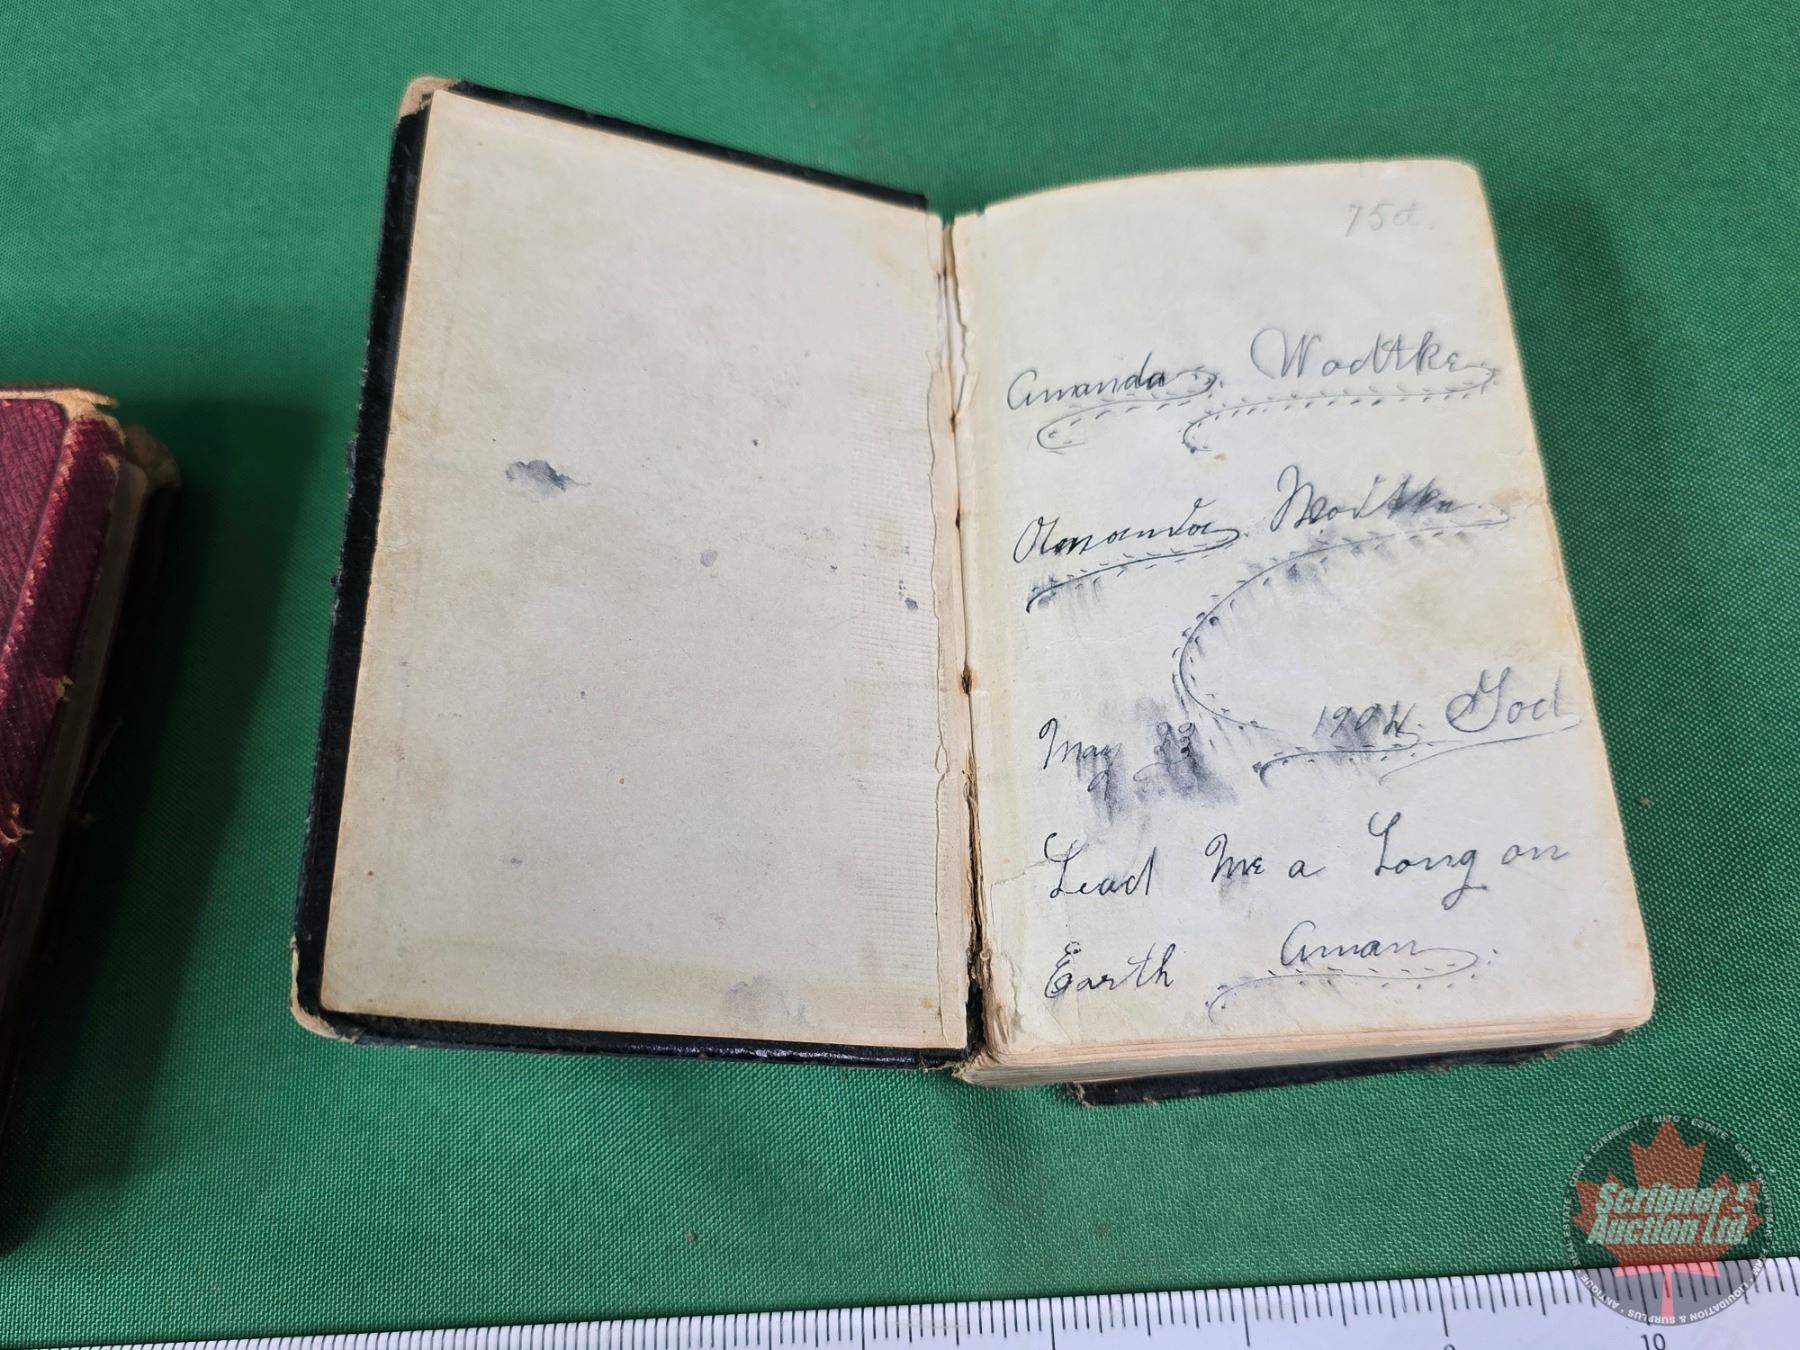 75ct.
Amanda Wodtke
Amanda Wodtke
May 23 1904. God
Lead Me a Long on
Earth Aman
Scribner
Auction Ltd.
10